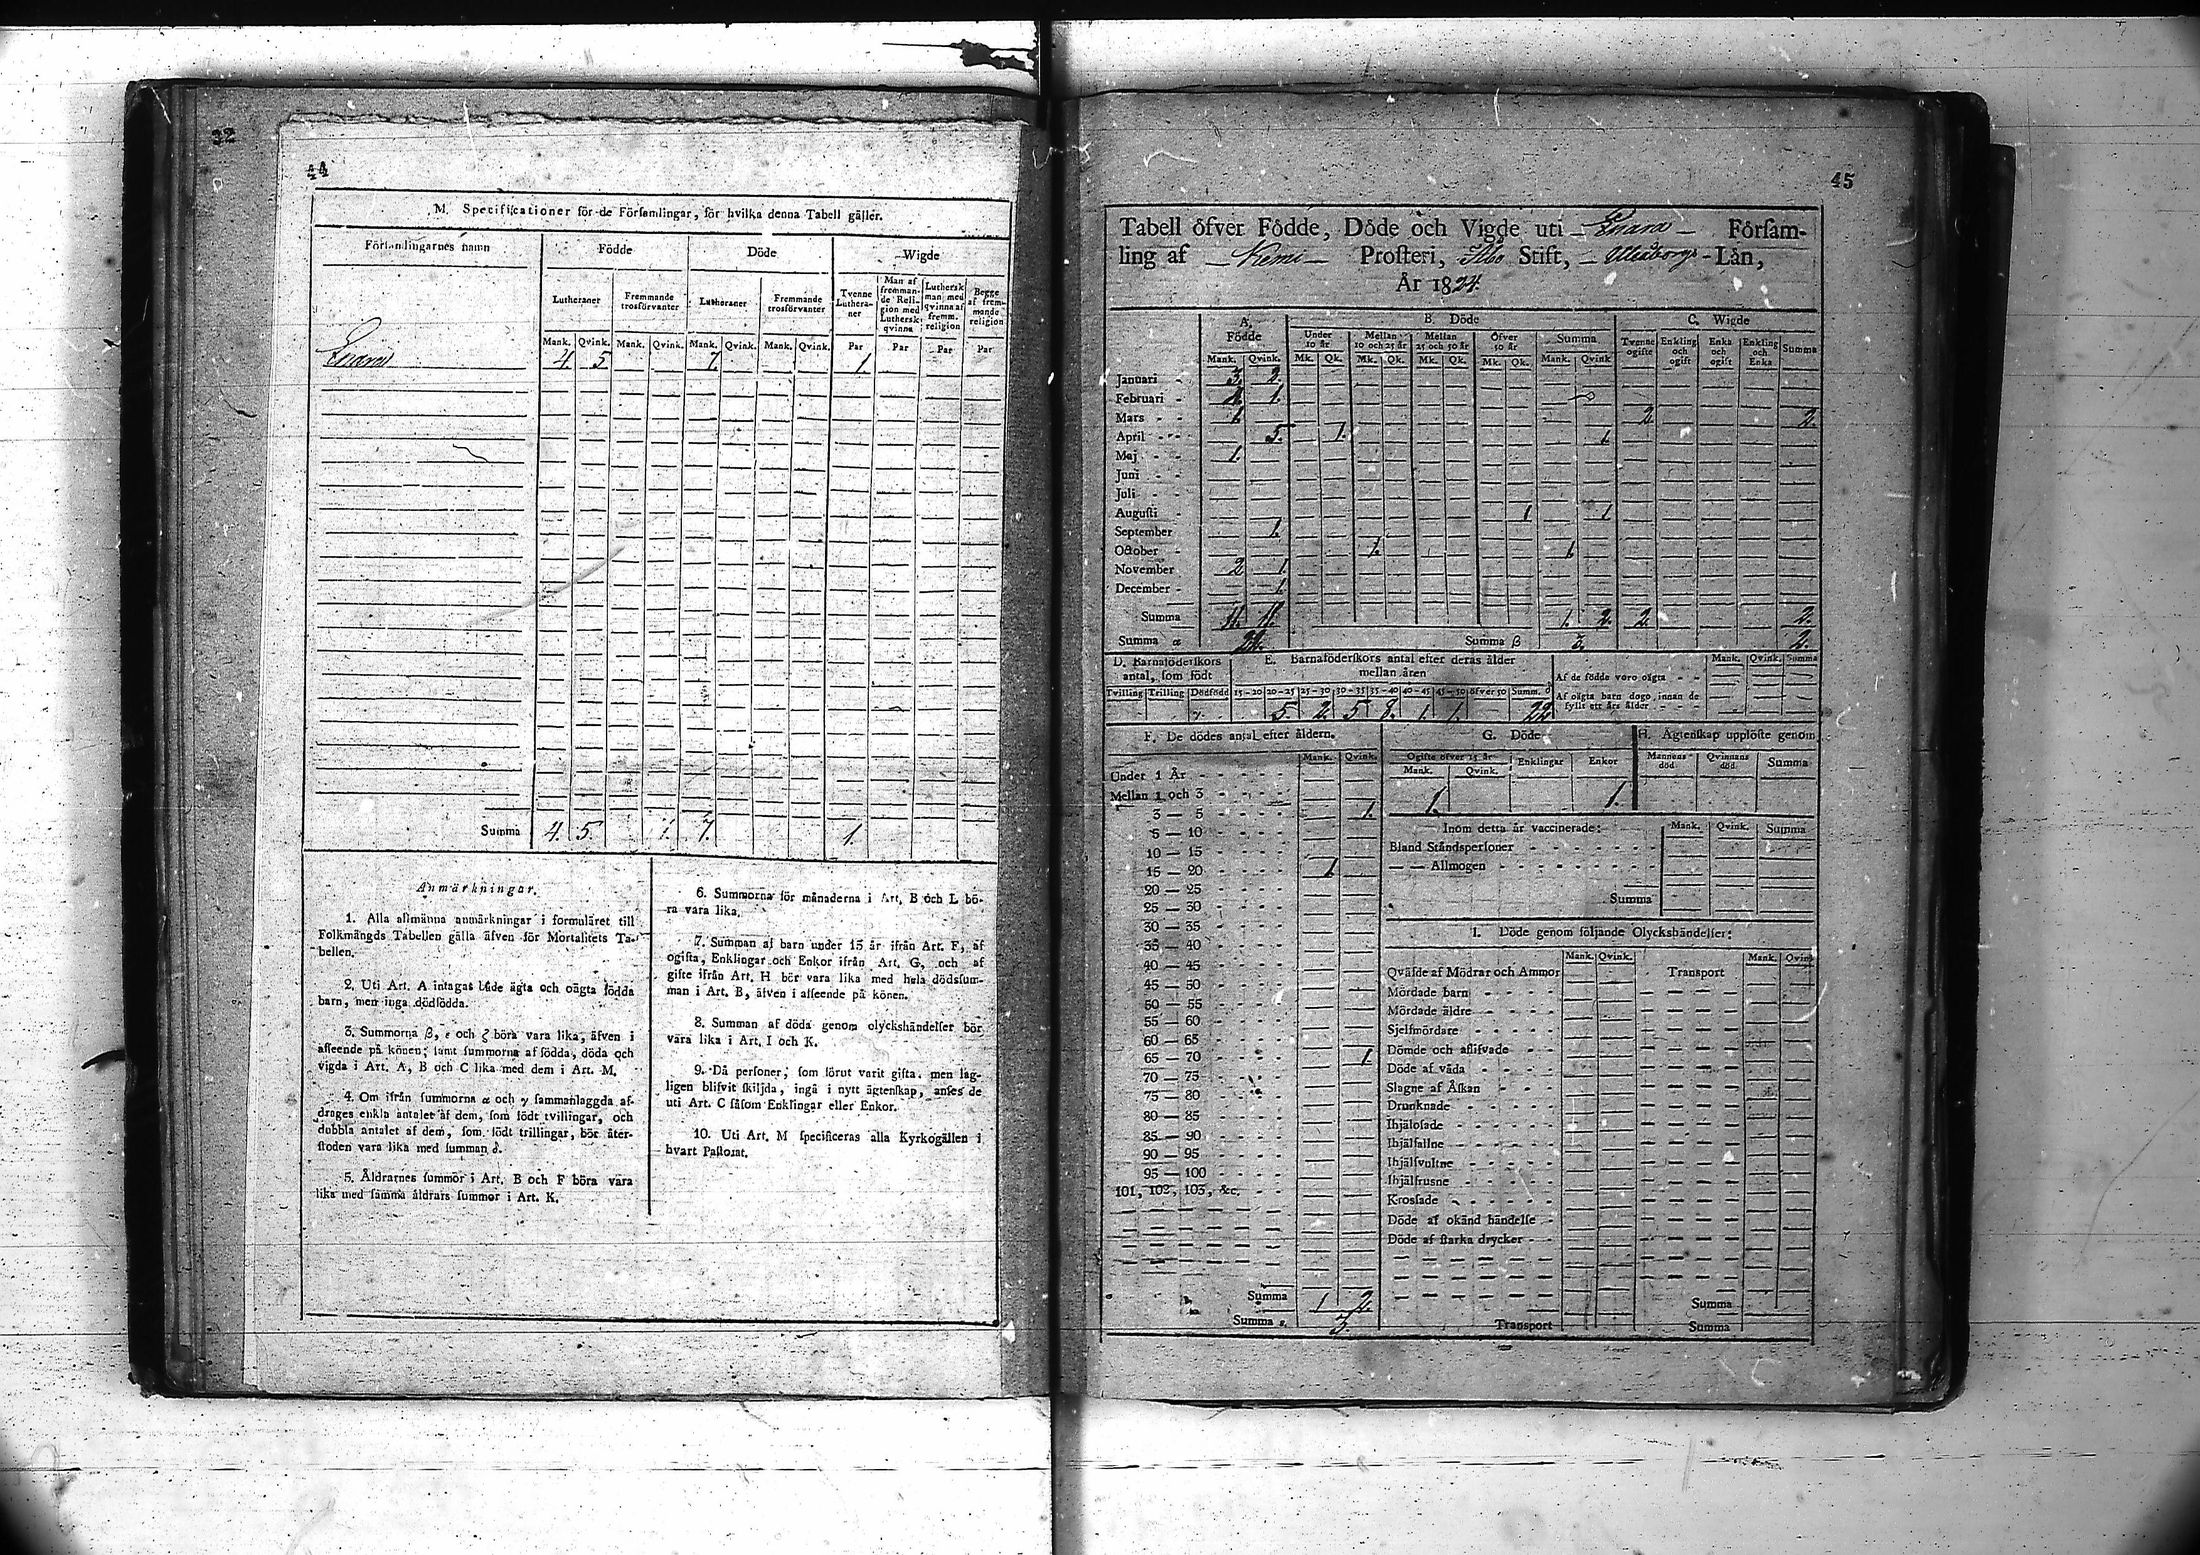 32
44
M. Specificationer för de Församlingar, för hvilka denna Tabell gäller.
Församlingarnes namn Födde Döde Wigde
Lutheraner Fremmande trosförvanter Lutheraner Fremmande trosförvanter Tvenne Lutheraner Man af fremmande Religion med Luthersk qvinna Luthersk man med qvinna af fremm. religion Begge af fremmande religion
Mank. Qvink. Mank. Qvink. Mank. Qvink. Mank. Qvink. Par Par Par Par
Enara 4. 5. 7. 1.
Summa 4. 5. 1. 7. 1.
Anmärkningar.
1. Alla allmänna anmärkningar i formuläret till
Folkmängds Tabellen gälla äfven för Mortalitets Ta-
bellen.
2. Uti Art. A intagas både ägta och oägta födda
barn, men inga dödfödda.
3. Summorna β, ε och ζ böra vara lika, äfven i
afseende på könen; samt summorna af födda, döda och
vigda i Art. A, B och C lika med dem i Art. M.
4. Om ifrån summorna α och γ sammanlaggda af-
drages enkla antalet af dem, som födt tvillingar, och
dubbla antalet af dem, som födt trillingar, bör åter-
stoden vara lika med summan δ.
5. Åldrarnes summor i Art. B och F böra vara
lika med samma åldrars summor i Art. K.
6. Summorna för månaderna i Art. B och L bö-
ra vara lika.
7. Summan af barn under 15 år ifrån Art. F, af
ogifta, Enklingar och Enkor ifrån Art. G, och af
gifte ifrån Art. H bör vara lika med hela dödssum-
man i Art. B, äfven i afseende på könen.
8. Summan af döda genom olyckshändelser bör
vara lika i Art. I och K.
9. Då personer, som förut varit gifta, men lag-
ligen blifvit skiljda, ingå i nytt ägtenskap, anses de
uti Art. C såsom Enklingar eller Enkor.
10. Uti Art. M specificeras alla Kyrkogällen i
hvart Pastorat.
45
Tabell öfver Födde, Döde och Vigde uti Enara Försam-
ling af Kemi Prosteri, Åbo Stift, Uleåborgs Län,
År 1824.
A. Födde B. Döde C. Wigde
Under 10 år Mellan 10 och 25 år Mellan 25 och 50 år Öfver 50 år Summa Tvenne ogifte Enkling och ogift Enka och ogift Enkling och Enka Summa
Mank. Qvink. Mk. Qk. Mk. Qk. Mk. Qk. Mk. Qk. Mank. Qvink
Januari 3. 2.
Februari 1.
Mars 1. 2 2.
April 5. 1. 1.
Maj 1.
Juni
Juli
Augusti 1 1
September 1.
October 1. 1.
November 2 1.
December 1.
Summa 11. 11. 1. 2. 2. 2.
Summa α 22. Summa β 3. 2.
D. Barnaföderskors antal, som födt E. Barnaföderskors antal efter deras ålder mellan åren
Mank. Qvink. Summa
Af de födde voro oägta
Af oägta barn dogo innan de fyllt ett års ålder
Tvilling Trilling Dödfödd 15-20 20-25 25-30 30-35 35-40 40-45 45-50 öfver 50 Summ. δ
γ 5. 2. 5 8. 1. 1. 22
F. De dödes antal efter åldern.
Mank. Qvink.
Under 1 År
Mellan 1 och 3
3 — 5 1.
5 — 10
10 — 15
15 — 20 1.
20 — 25
25 — 30
30 — 35
35 — 40
40 — 45
45 — 50
50 — 55
55 — 60
60 — 65
65 — 70 1.
70 — 75
75 — 80
80 — 85
85 — 90
90 — 95
95 — 100
101, 102, 103, &c.
Summa 1 2.
Summa ε. 3.
G. Döde
Ogifte öfver 15 år Enklingar Enkor
Mank. Qvink.
1. 1.
H. Ägtenskap upplöste genom
Mannens död Qvinnans död Summa
Inom detta år vaccinerade: Mank. Qvink. Summa
Bland Ståndspersoner
— — Allmogen
Summa
I. Döde genom följande Olyckshändelser:
Mank. Qvink. Transport Mank. Qvink
Qväfde af Mödrar och Ammor
Mördade barn
Mördade äldre
Sjelfmördare
Dömde och aflifvade
Döde af våda
Slagne af Åskan
Drunknade
Ihjälosade
Ihjälfallne
Ihjälsvultne
Ihjälfrusne
Krossade
Döde af okänd händelse
Döde af starka drycker
Transport
Summa
Summa